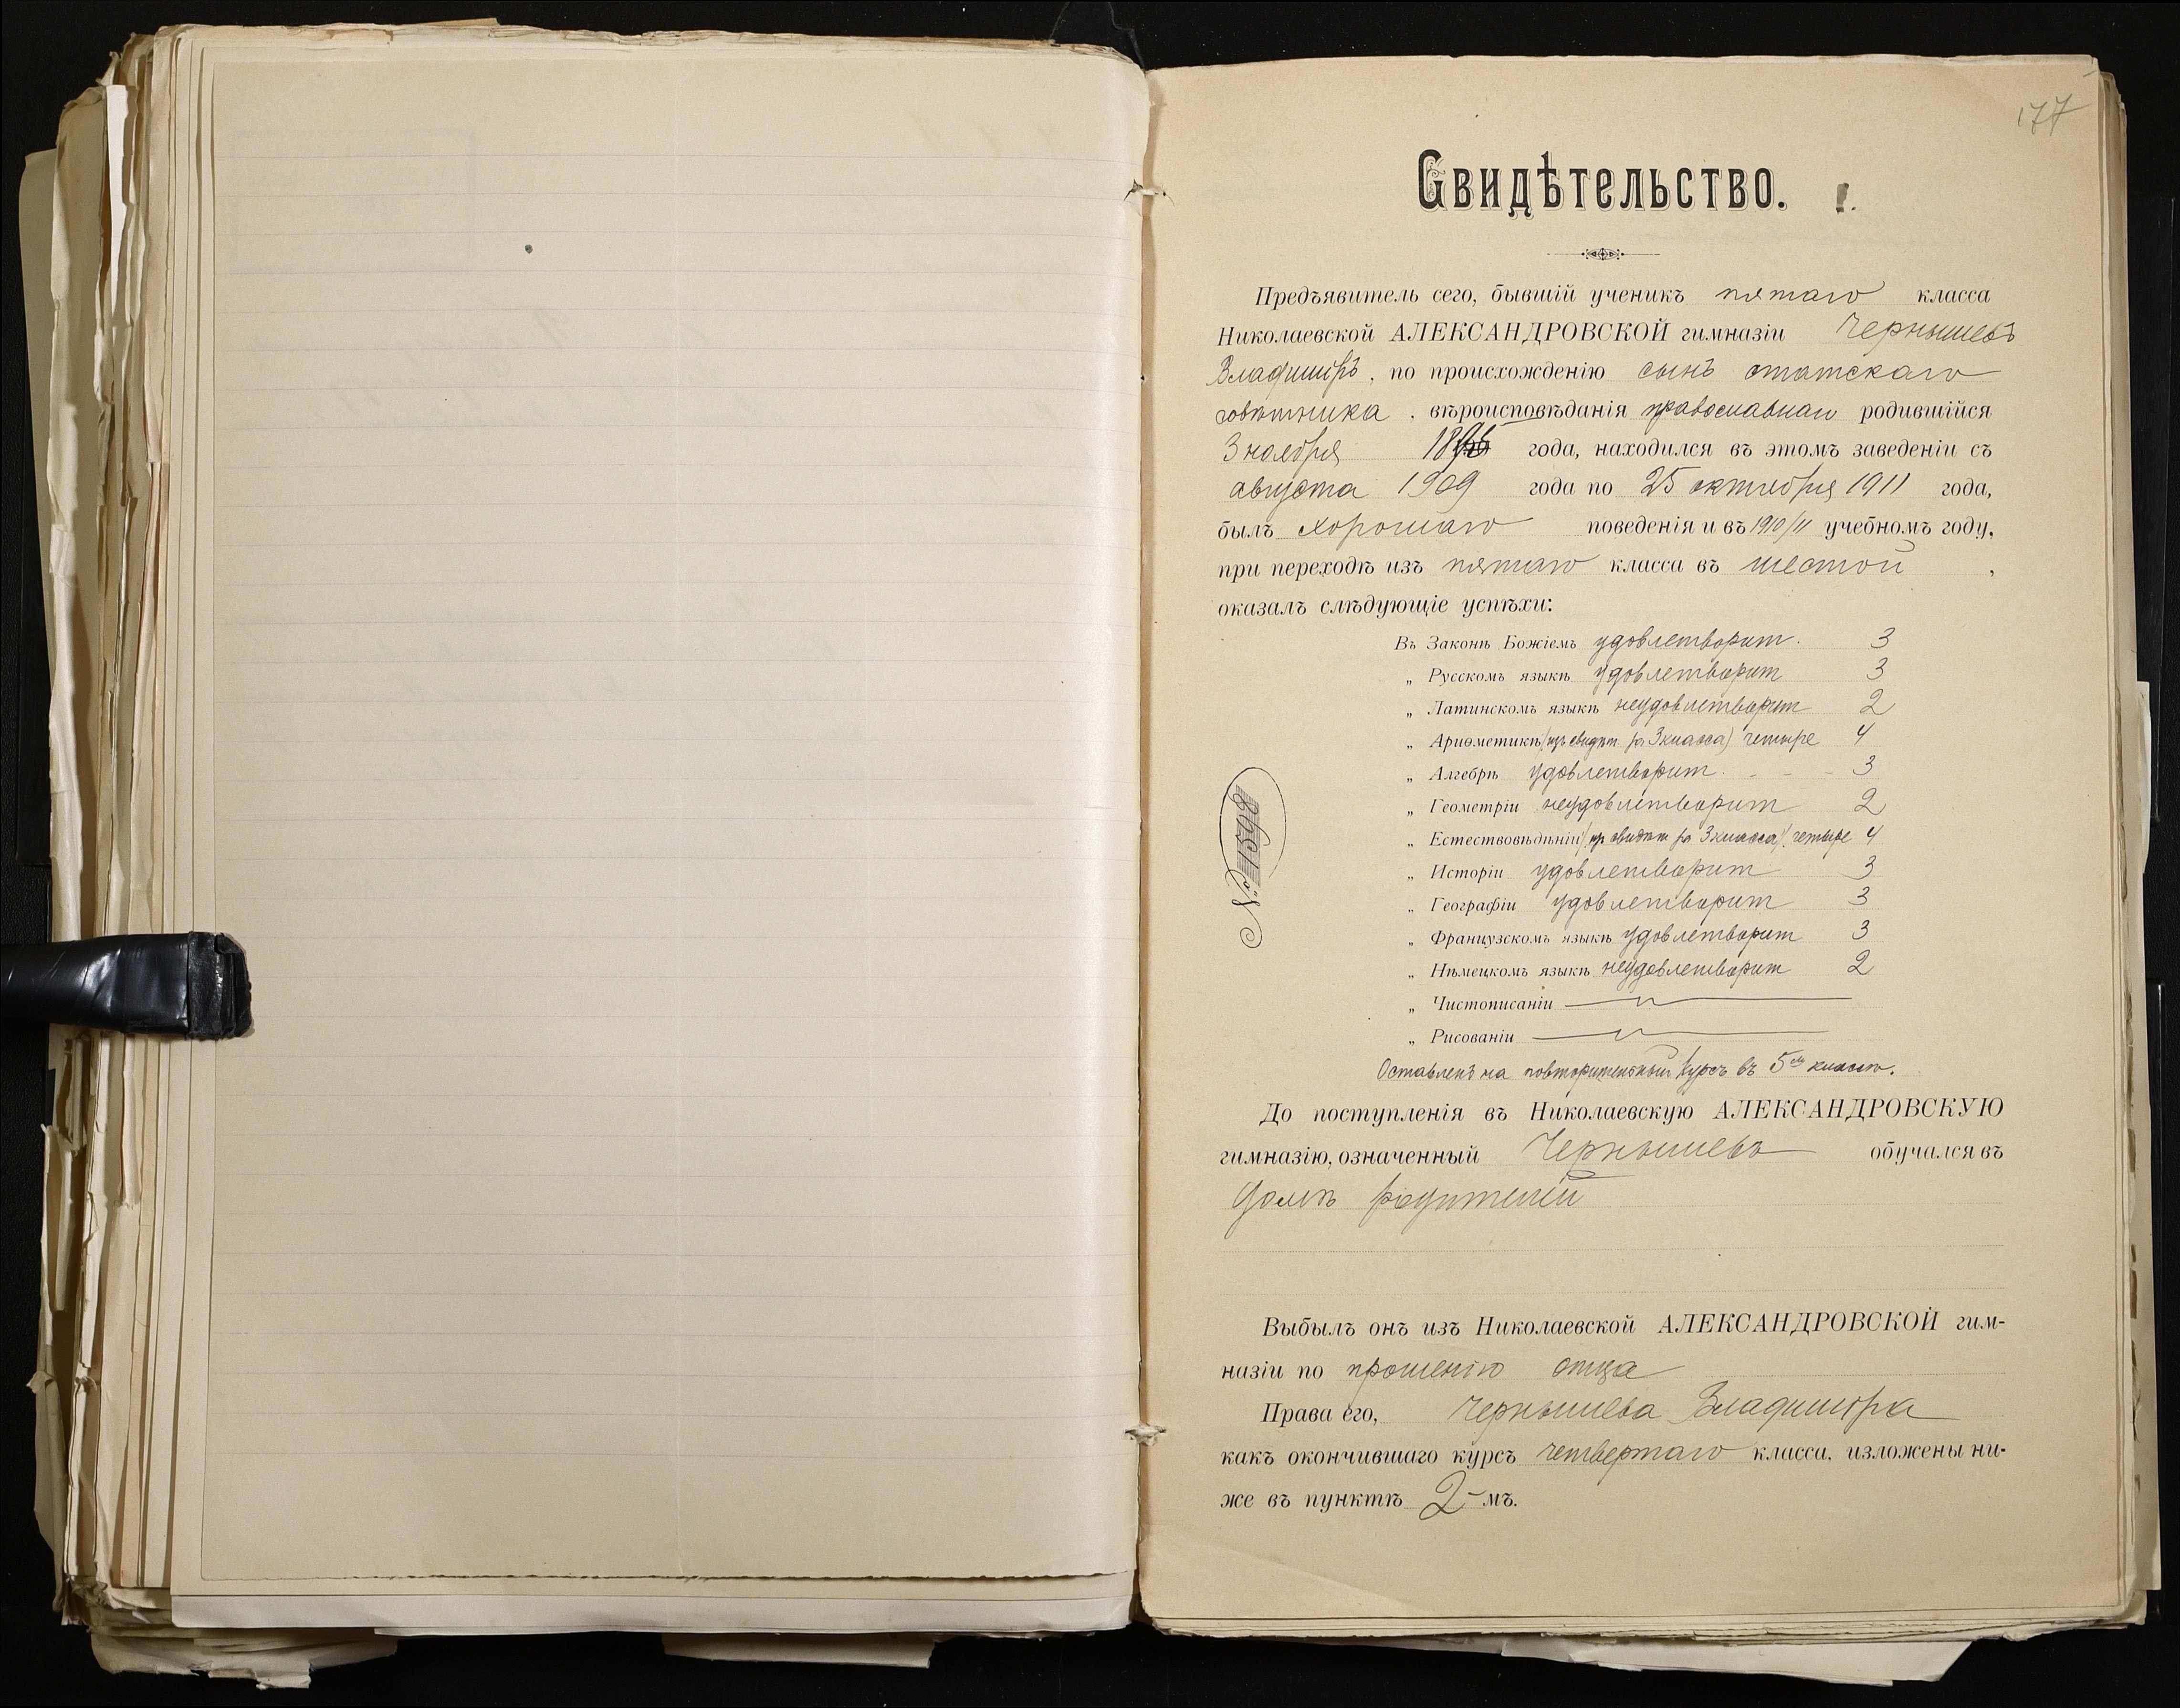 177
Свидѣтельство.
Предъявитель сего, бывшій ученикъ пятаго класса
Николаевской АЛЕКСАНДРОВСКОЙ гимназіи Чернышевъ
Владиміръ, по происхожденію сынъ статскаго
совѣтника, вѣроисповѣданія православнаго родившійся
3 ноября года, находился въ этомъ заведеніи съ
августа 1909 года по 25 октября 1911 года,
былъ хорошаго поведенія и въ 1910/11 учебномъ году,
при переходѣ изъ пятаго класса въ шестой,
оказалъ слѣдующіе успѣхи:
Въ Законѣ Божіемъ удовлетворит. 3
„ Русскомъ языкѣ удовлетворит 3
„ Латинскомъ языкѣ неудовлетворит 2
„ Ариѳметикѣ (изъ свидѣт. за 3 класса) четыре 4
„ Алгебрѣ удовлетворит. - - - 3
„ Геометріи неудовлетворит 2
„ Естествовѣдѣніи (из свидѣт за 3 класса) четыре 4
„ Исторіи удовлетворит 3
„ Географіи удовлетворит 3
„ Французскомъ языкѣ удовлетворит 3
„ Нѣмецкомъ языкѣ неудовлетворит 2
„ Чистописаніи
„ Рисованіи
Оставленъ на повторительный курсъ въ 5мъ классѣ.
№ 1598
До поступленія въ Николаевскую АЛЕКСАНДРОВСКУЮ
гимназію, означенный Чернышевъ обучался въ
домѣ родителей
Выбылъ онъ изъ Николаевской АЛЕКСАНДРОВСКОЙ гим-
назіи по прошенію отца
Права его, Чернышева Владиміра
какъ окончившаго курсъ четвертаго класса, изложены ни-
же въ пунктѣ 2-мъ.